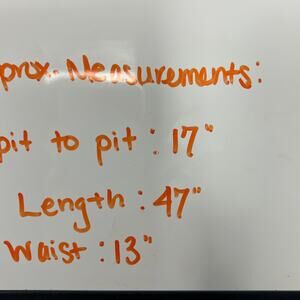 prox. Measurements:
pit to pit: 17"
Length: 47"
Waist: 13"